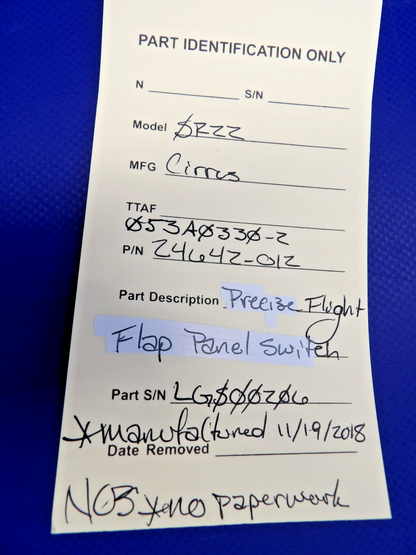 PART IDENTIFICATION ONLY
N S/N
Model SR22
MFG Cirrus
TTAF
053A0330-2
P/N 24642-012
Part Description Precise Flight
Flap Panel Switch
Part S/N LG$000206
*manufactured 11/19/2018
Date Removed
NOS *no paperwork